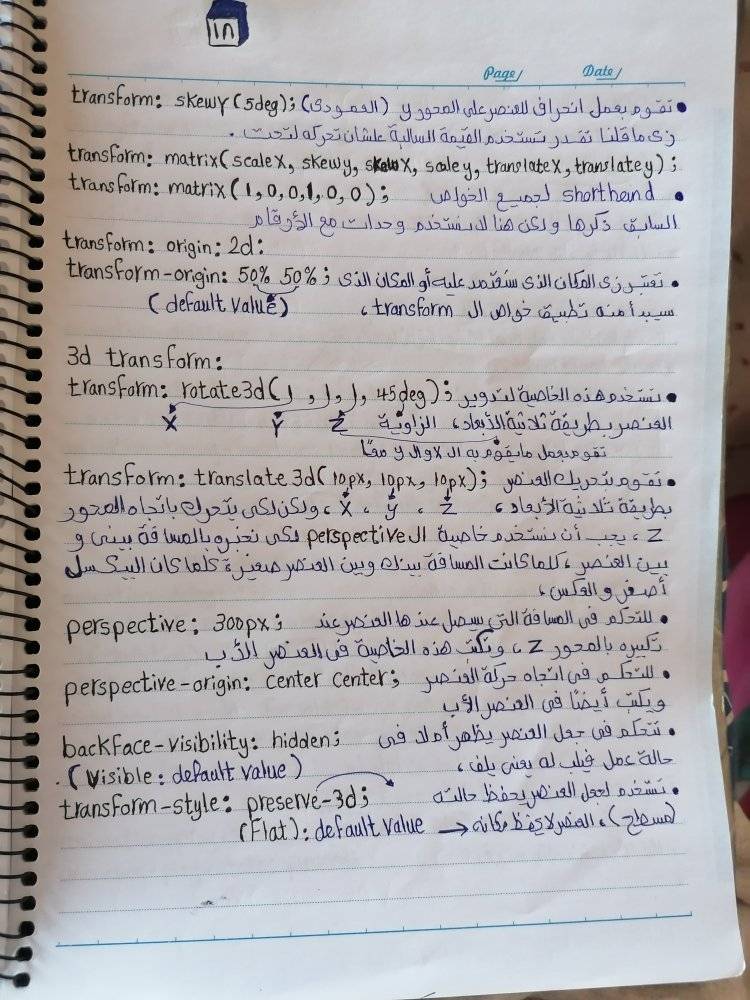 in
Page/ Date/
transform: skewy(5deg); • تقوم بعمل انحراف للعنصر على المحور y (العمودى)
زى ما قلنا تقدر تستخدم القيمة السالبة علشان تحركه لتحت .
transform: matrix(scaleX, skewy, skewX, scaley, translateX, translatey);
transform: matrix(1,0,0,1,0,0); • shorthand لجميع الخواص
السابق ذكرها ولكن هنا لا نستخدم وحدات مع الأرقام
transform: origin: 2d:
transform-origin: 50% 50%; • تعتبر زى المكان الذى ستعتمد عليه أو المكان الذى
(default value) سيبدأ منه تطبيق خواص ال transform ،
3d transform:
transform: rotate3d(1,1,1,45deg); • تستخدم هذه الخاصية لتدوير
X Y Z العنصر بطريقة ثلاثية الأبعاد، الزاوية
تقوم بعمل ما يقوم به ال X وال y معًا
transform: translate3d(10px, 10px, 10px); • تقوم بتحريك العنصر
بطريقة ثلاثية الأبعاد، X ، y ، Z ، ولكن لكى يتحرك باتجاه المحور
Z ، يجب أن نستخدم خاصية ال perspective لكى نخبره بالمسافة بينى و
بين العنصر، كلما كانت المسافة بينك وبين العنصر صغيرة كلما كان البيكسل
أصغر والعكس،
perspective: 300px; • للتحكم فى المسافة التى سيصل عندها العنصر عند
تكبيره بالمحور Z ، وتكتب هذه الخاصية فى العنصر الأب
perspective-origin: center center; • للتحكم فى اتجاه حركة العنصر
ويكتب أيضًا فى العنصر الأب
backface-visibility: hidden; • تتحكم فى جعل العنصر يظهر أم لا فى
(visible: default value) حالة عمل فيلب له يعنى يلف ،
transform-style: preserve-3d; • تستخدم لجعل العنصر يحفظ حالته
(Flat): default value → (مسطح)، العنصر لا يحفظ مكانه